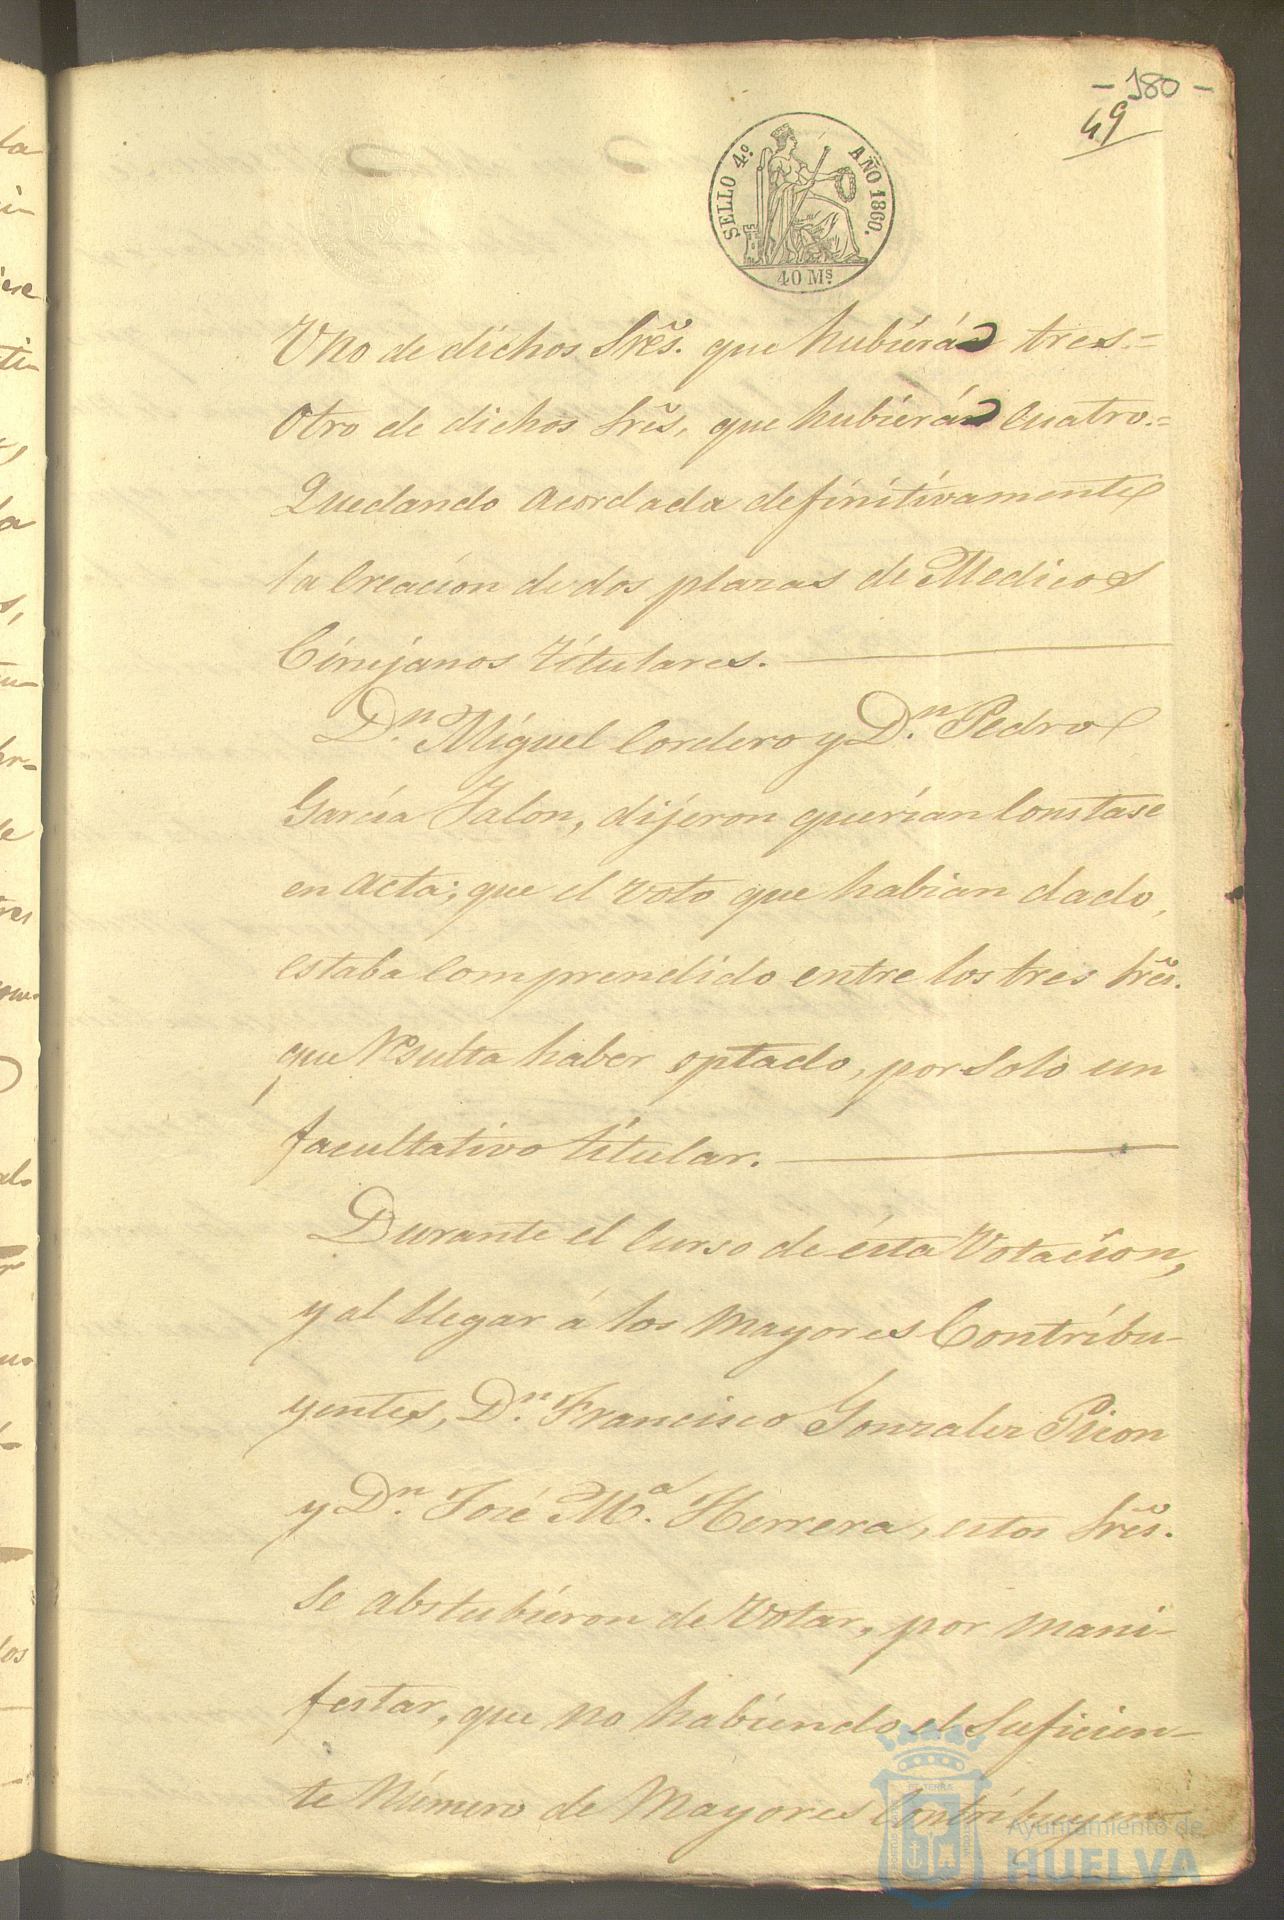 - 180 -
49
SELLO 4º. AÑO 1860.
40 Ms.
Uno de dichos Sres. que hubiera tres.=
Otro de dichos Sres. que hubiera cuatro.=
Quedando acordada definitivamente
la Creacion de dos plazas de Medicos
Cirujanos titulares.
Dn. Miguel Cordero y Dn. Pedro
Garcia Jalon, dijeron querian Constase
en acta; que el voto que habian dado,
estaba Comprendido entre los tres Sres.
que Resulta haber optado, por Solo un
facultativo titular.
Durante el Curso de ésta Votacion,
y al llegar á los Mayores Contribu-
yentes, Dn. Francisco Gonzalez Picon
y Dn. José Ma. Herrera, estos Sres.
Se abstubieron de Votar, por mani-
festar, que no habiendo el Suficien-
te Número de Mayores Contribuyen-
Ayuntamiento de
HUELVA